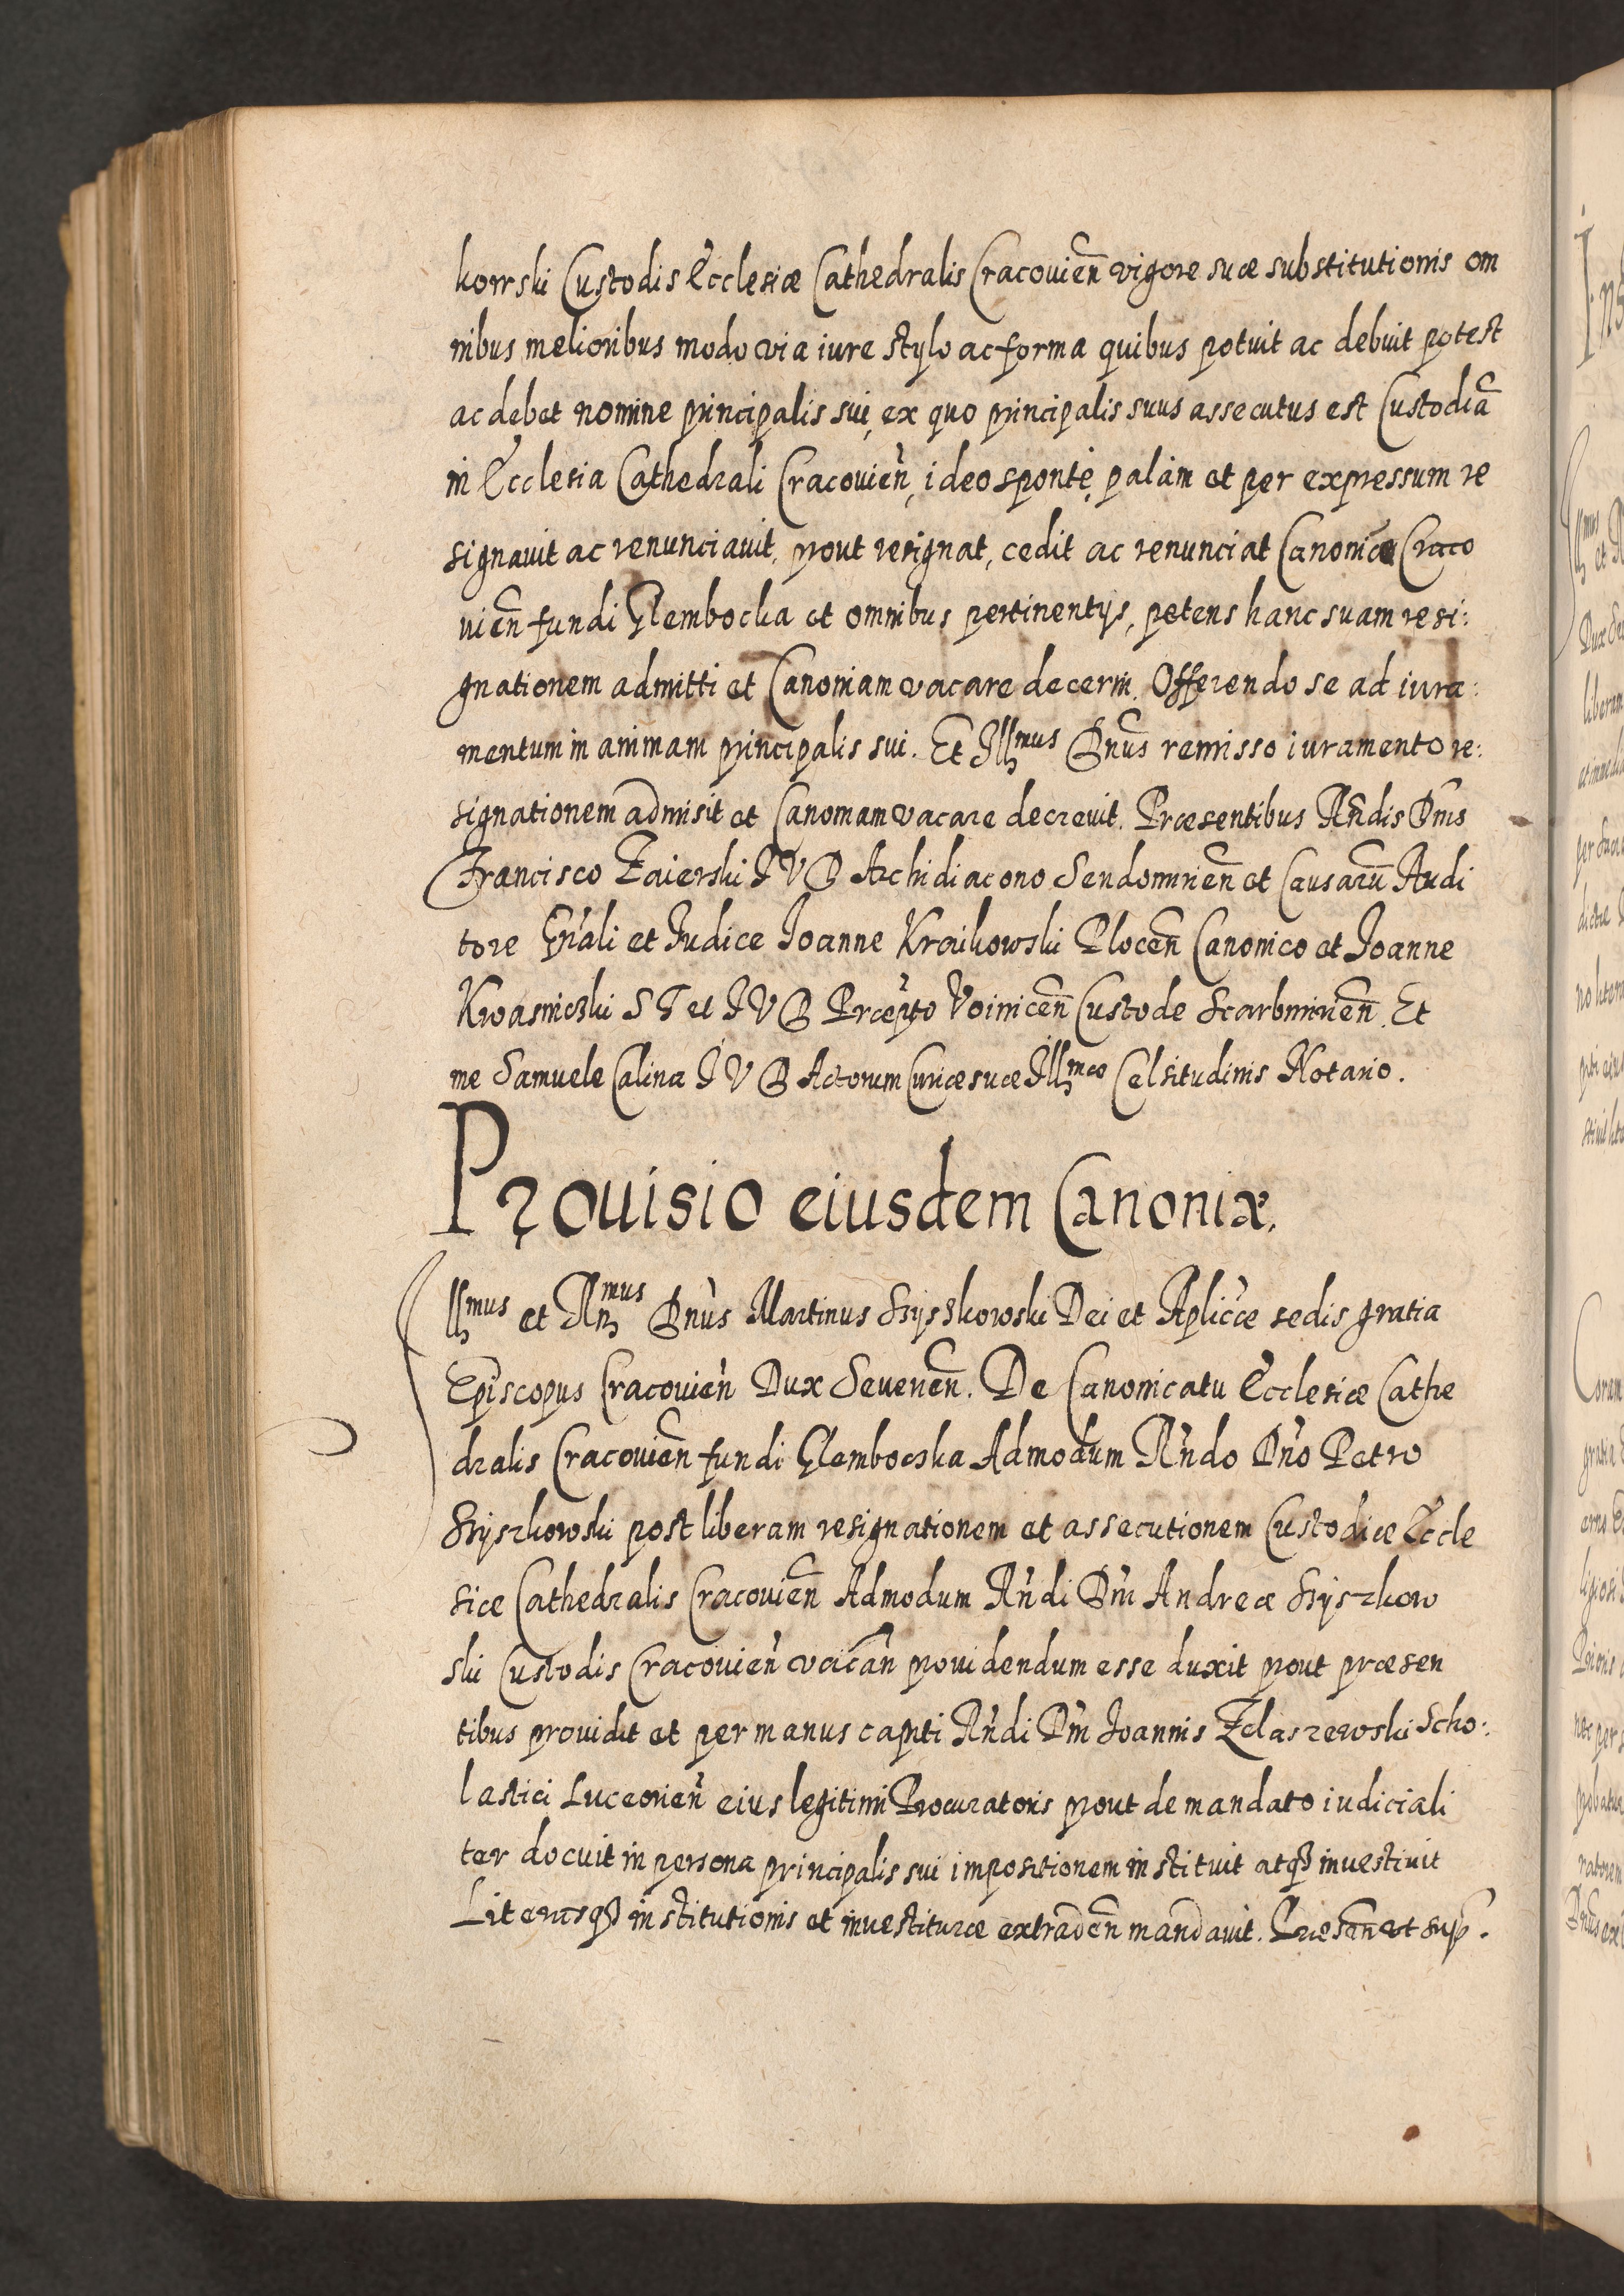 kowski Custodis Ecclesiæ Cathedralis Cracouien̄ vigore suæ substitutionis om
nibus melioribus modo via iure stylo ac forma quibus potuit ac debuit potest
ac debet nomine principalis sui, ex quo principalis suus assecutus est Custodiā
in Ecclesia Cathedrali Cracouień, ideo sponte, palàm et per expressum re
signauit ac renunciauit, prout resignat, cedit ac renunciat Canoniæ Craco
uień fundi Glembocka et omnibus pertinentijs, petens hanc suam resi:
gnationem admitti et Canoniam vacare decerni. Offerendo se ad iura:
mentum in animam principalis sui. Et Illmus Dnūs remisso iuramento re:
signationem admisit et Canoniam vacare decreuit. Præsentibus Rn̄dis Dn̄is
Francisco Zaierski I V D Archidiacono Sendomirien̄ et Causarū Audi
tore Gn̄ali et Iudice Ioanne Kraikowski Plocen̄ Canonico et Ioanne
Kwasniczki S T et I V D Præpto Voinicen̄ Custode Scarbimirien̄. Et
me Samuele Calina I V D Actorum Curiæ suæ Illmæ Celsitudinis Notario.
Prouisio eiusdem Canoniæ.
Illmus et Rn̄mus Dnūs Martinus Szyszkowski Dei et Aplicæ sedis gratia
Episcopus Cracouień Dux Seuerien̄. De Canonicatu Ecclesiæ Cathe
dralis Cracouien̄ fundi Glemboczka Admodum Rńdo Dńo Petro
Szyszkowski post liberam resignationem et assecutionem Custodiæ Eccle
siæ Cathedralis Cracouien̄ Admodum Rńdi Dńi Andreæ Szyszkow
ski Custodis Cracouień vacań prouidendum esse duxit prout præsen
tibus prouidit et per manus capiti Rńdi Dńi Ioannis Zelaszewski Scho:
lastici Luceorień eius legitimi Procuratoris prout de mandato iudiciali
ter docuit in persona principalis sui impositionem instituit atqȝ inuestiuit
Literasqȝ institutionis et inuestituræ extraden̄ mandauit. Præsen̄ ut sup.